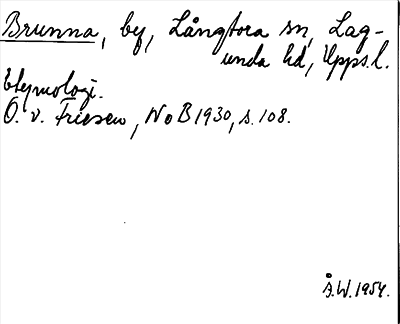 Brunna, by, Långtora sn, Lag-
unda hd, Upps.l.
Etymologi.
O. v. Friesen, NoB 1930, s. 108.
Å.W. 1954.